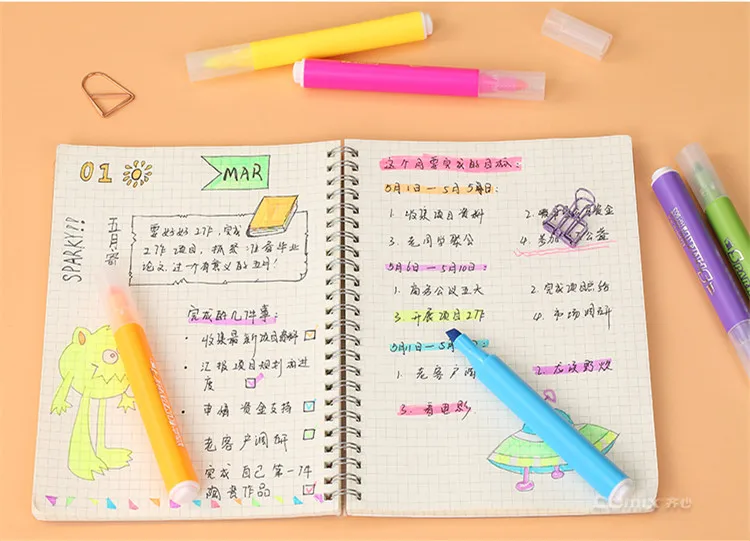 01
MAR
SPARKY??
五月客
要好好工作,完成
工作项目,抓紧准备毕业
论文,过一个有意义的五月!
完成的几件事:
收集最新项目资料
汇报项目规划和进
度
申请资金支持
老客户调研
完成自己第一个
陶瓷作品
这个月要完成的目标:
5月1日—5月5日:
1. 收集项目资料
2. 资金
3. 老同学聚会
4. 参加公益
5月6日—5月10日:
1. 商务会议五天
2. 完成项目总结
3. 开展项目工作
4. 市场调研
5月1日—5月
1. 老客户调
2. 龙议野炊
3. 看电影
Comix 齐心